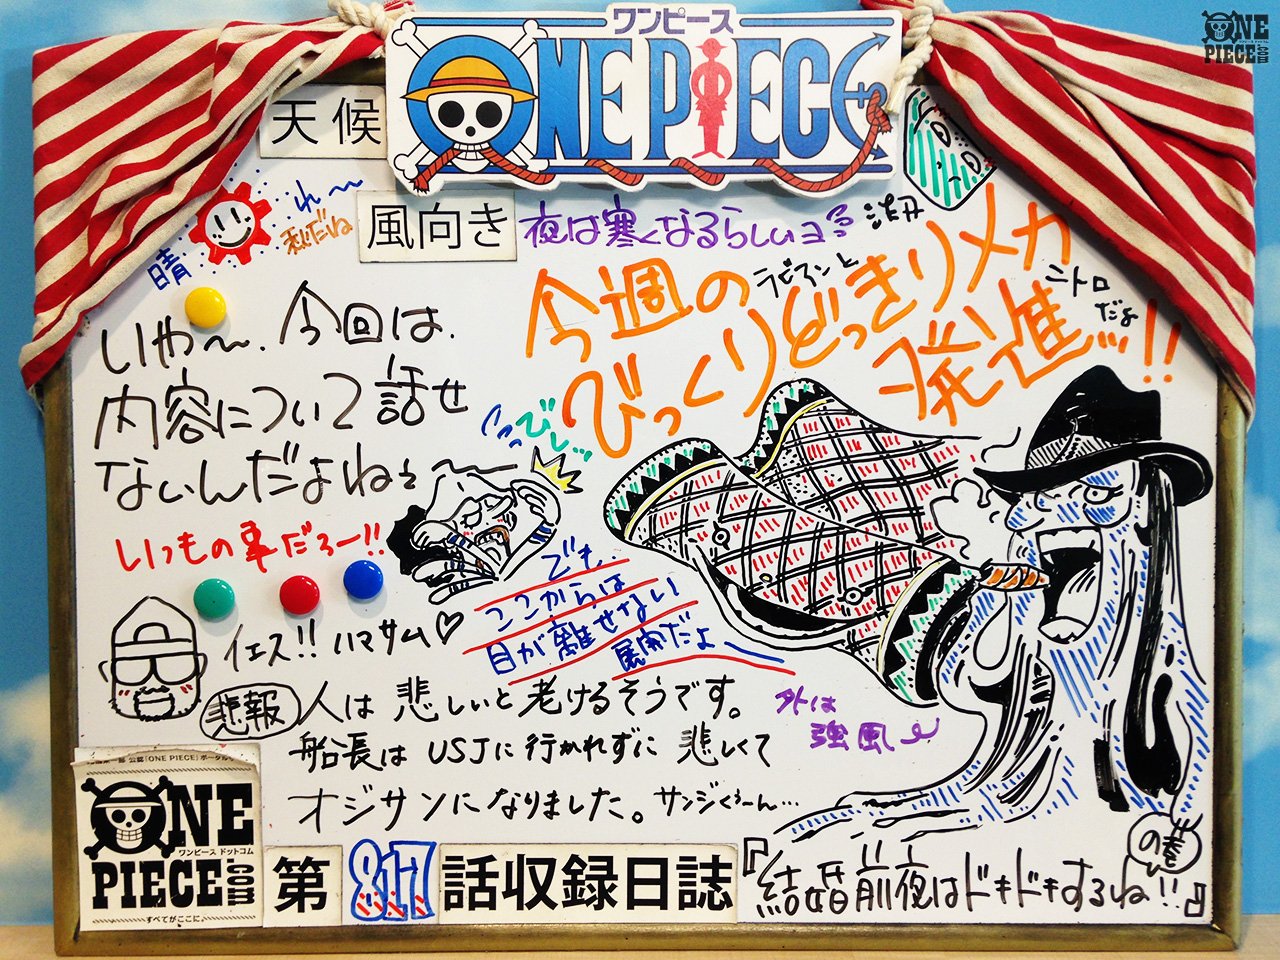 ワンピース
ONE PIECE
ONE
PIECE
.com
天候
晴れ〜
秋だね
風向き
夜は寒くなるらしいヨ
今週の
びっくりどっきりメカ
発進ッ!!
ラビアンと
ニトロ
だよ
いや〜、今回は、
内容について話せ
ないんだよねぇ〜
びし…
いつもの事だろー!!
でも
ここからは
目が離せない
展開だよ〜
イエス!! ハマサム♡
悲報 人は悲しいと老けるそうです。
船長はUSJに行かれずに悲しくて
オジサンになりました。サンジくぅーん…
外は
強風
公認『ONE PIECE』ポータル
ONE
ワンピース ドットコム
PIECE
.com
すべてがここに。
第817話収録日誌
『結婚前夜はドキドキするね!!』
の巻